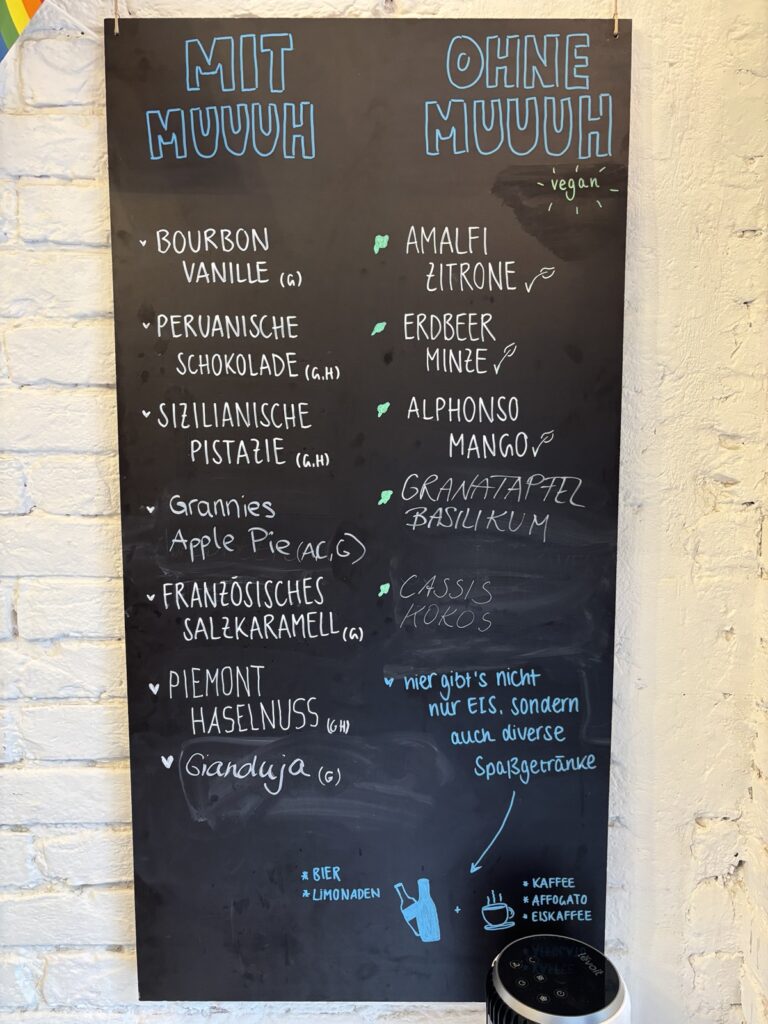 MIT
MUUUH
BOURBON
VANILLE (G)
PERUANISCHE
SCHOKOLADE (G.H)
SIZILIANISCHE
PISTAZIE (G.H)
Grannies
Apple Pie (A,C,G)
FRANZÖSISCHES
SALZKARAMELL (G)
PIEMONT
HASELNUSS (GH)
Gianduja (G)
OHNE
MUUUH
vegan
AMALFI
ZITRONE
ERDBEER
MINZE
ALPHONSO
MANGO
GRANATAPFEL
BASILIKUM
CASSIS
KOKOS
hier gibt's nicht
nur EIS, sondern
auch diverse
Spaßgetränke
* BIER
* LIMONADEN
+
* KAFFEE
* AFFOGATO
* EISKAFFEE
levoit